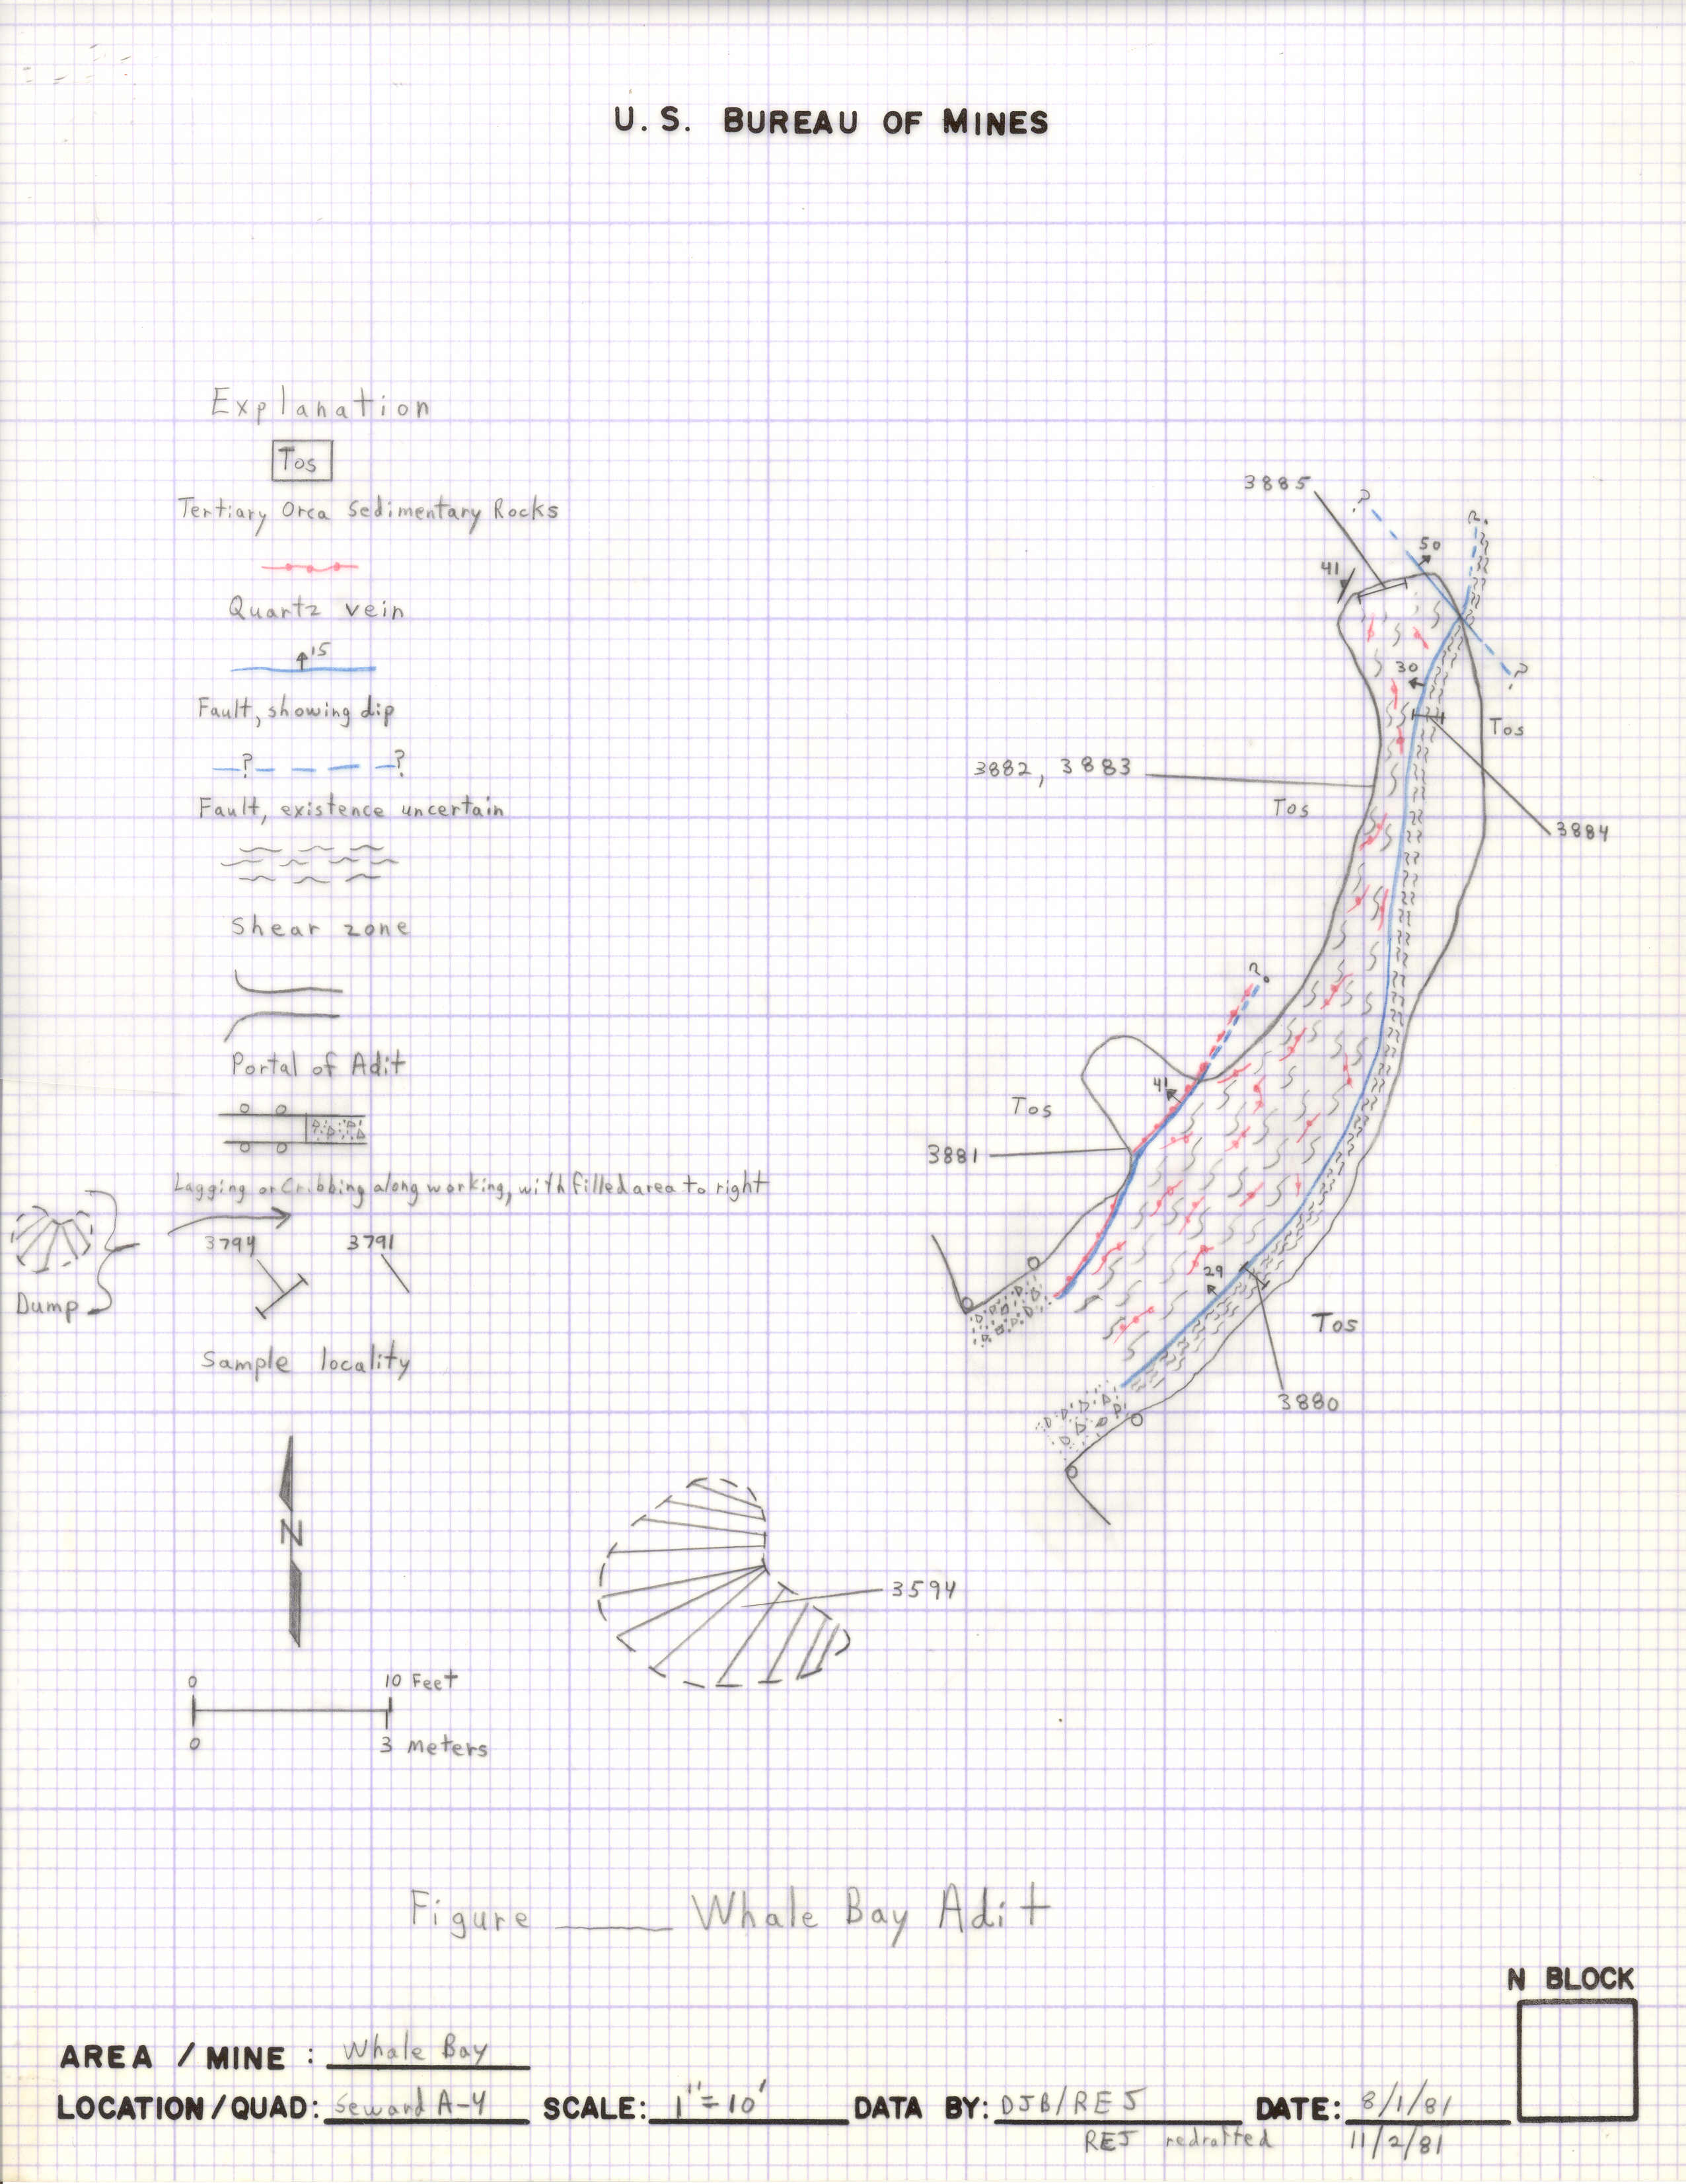 U.S. BUREAU OF MINES
Explanation
Tos
Tertiary Orca Sedimentary Rocks
Quartz vein
15
Fault, showing dip
? ?
Fault, existence uncertain
Shear zone
Portal of Adit
Lagging or Cribbing along working, with filled area to right
3794 3791
Dump
Sample locality
N
0 10 Feet
0 3 Meters
3885
?
?
50
41
?
30
Tos
3882, 3883
Tos
3884
?
41
Tos
3881
29
Tos
3880
3594
Figure ____ Whale Bay Adit
N BLOCK
AREA / MINE : Whale Bay
LOCATION/QUAD: Seward A-4 SCALE: 1"=10' DATA BY: DJB/REJ DATE: 8/1/81
REJ redrafted 11/2/81